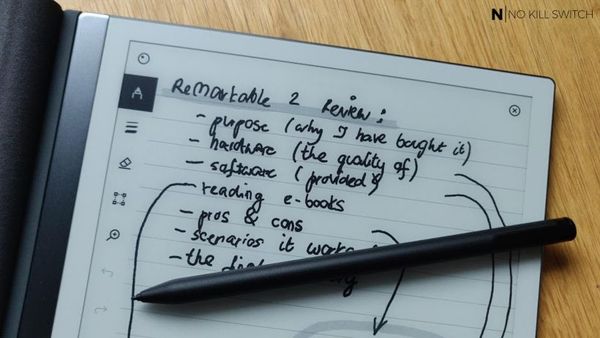 N | NO KILL SWITCH
ReMarkable 2 Review:
- purpose (why I have bought it)
- hardware (the quality of)
- software (provided)
- reading e-books
- pros & cons
- scenarios it works
- the